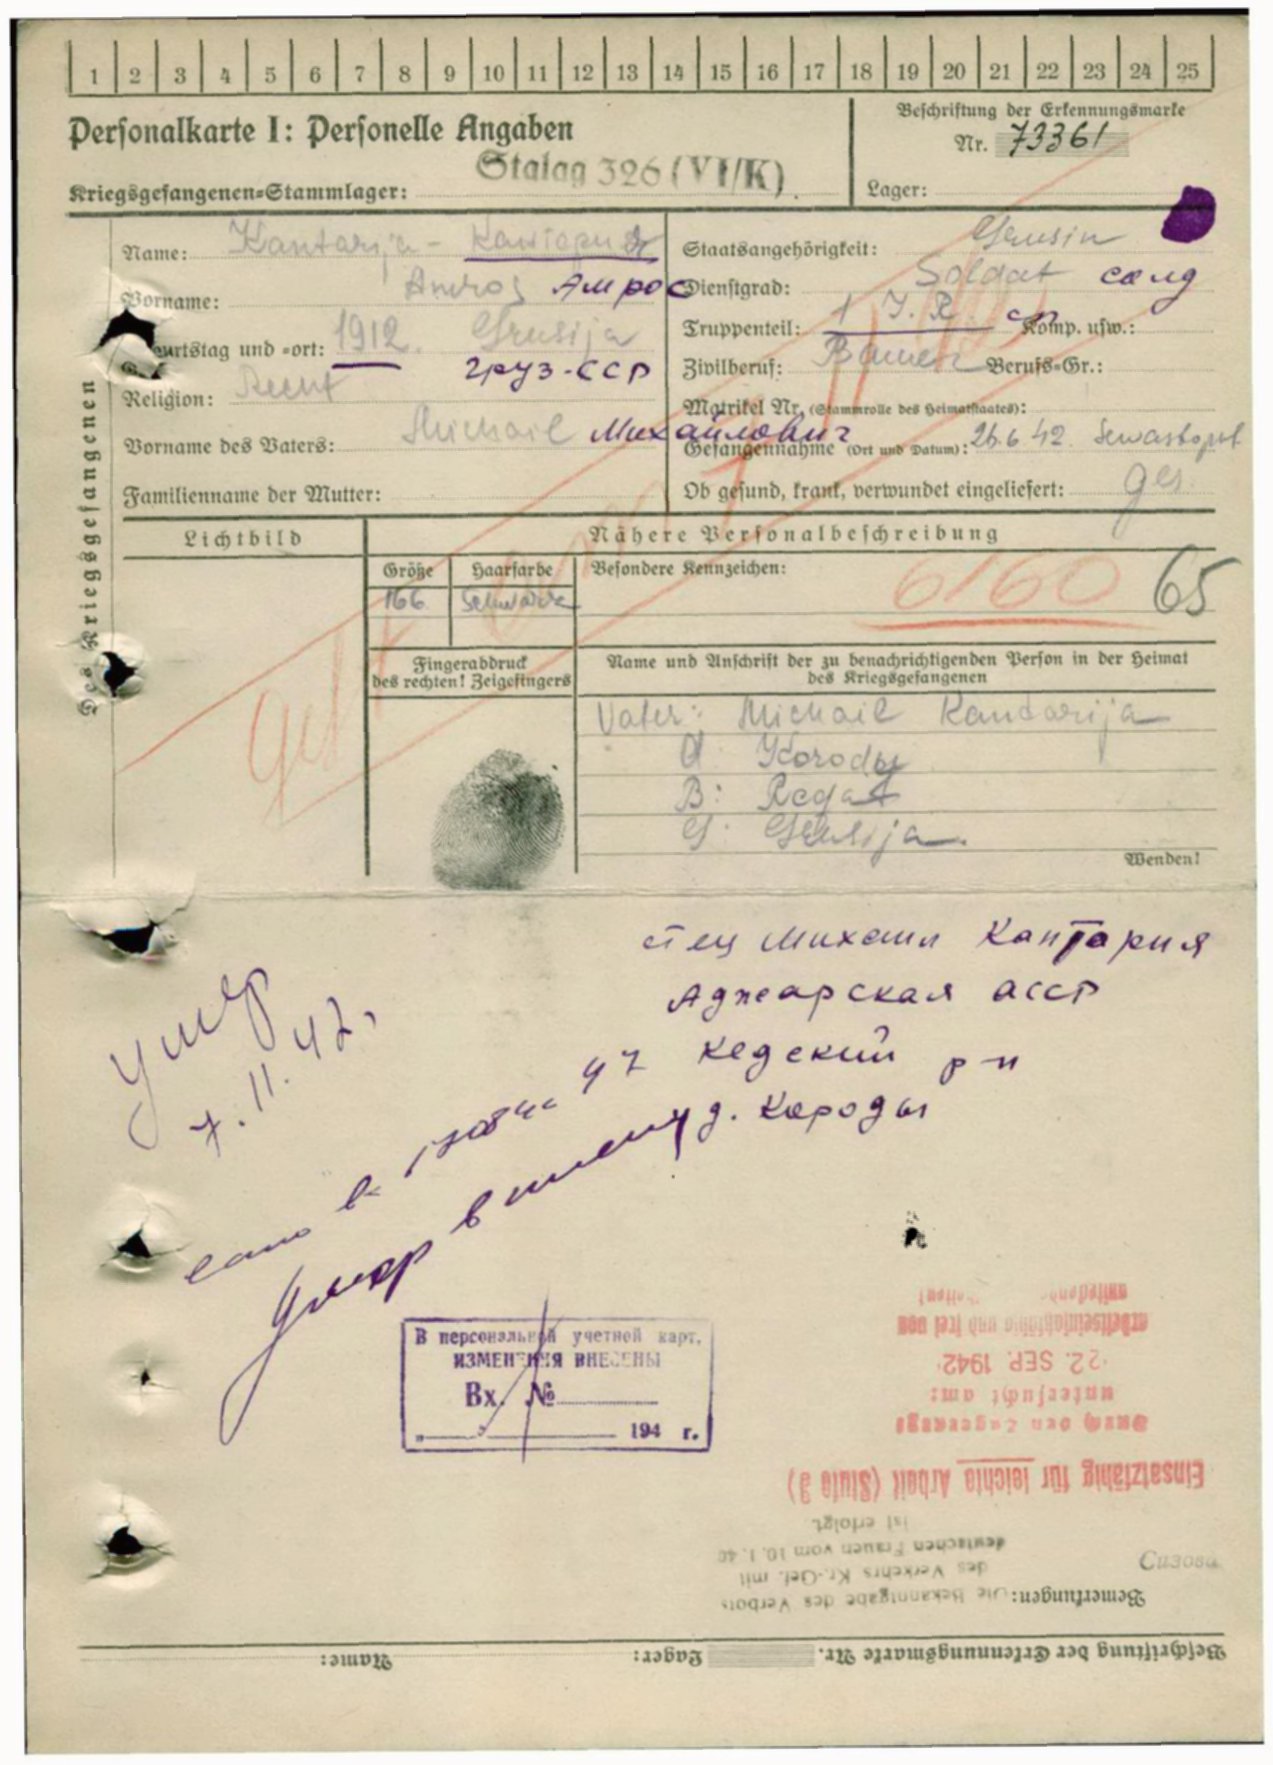 1 2 3 4 5 6 7 8 9 10 11 12 13 14 15 16 17 18 19 20 21 22 23 24 25
Personalkarte I: Personelle Angaben
Kriegsgefangenen=Stammlager: Stalag 326 (VI/K)
Beschriftung der Erkennungsmarke
Nr. 73361
Lager:
Des Kriegsgefangenen
Name: Kantarija - Кантария
Vorname: Amros Амрос
Geburtstag und =ort: 1912. Grusija
груз-ССР
Religion:
Vorname des Vaters: Michail Михайлович
Familienname der Mutter:
Staatsangehörigkeit: Grusin
Dienstgrad: Soldat солд
Truppenteil: 1 J. R. Komp. usw.:
Zivilberuf: Bauer Berufs=Gr.:
Matrikel Nr. (Stammrolle des Heimatstaates):
Gefangennahme (Ort und Datum): 26.6.42. Sewastopol
Ob gesund, krank, verwundet eingeliefert: ges.
Lichtbild
Nähere Personalbeschreibung
Größe Haarfarbe Besondere Kennzeichen:
166 schwarz
6160 65
Fingerabdruck
des rechten! Zeigefingers
Name und Anschrift der zu benachrichtigenden Person in der Heimat
des Kriegsgefangenen
Vater: Michail Kantarija
Korody
B:
G: Grusija.
Wenden!
отец Михаил Кантария
Аджарская АССР
Кедский р-н
д. Короды
умер
7.11.42.
Умер в плену
В персональной учетной карт.
ИЗМЕНЕНИЯ ВНЕСЕНЫ
Вх. №
" " 194 г.
unterwegs
arbeitseinsatzfähig und frei von
22. SEP. 1942
untersucht am:
Durch den Lagerarzt
Einsatzfähig für leichte Arbeit (Stufe 3)
ist erfolgt.
deutschen Frauen vom 10. 1. 40
des Verkehrs Kr.-Gef. mit
Bemerkungen: Die Bekanntgabe des Verbots
Сизова
Beschriftung der Erkennungsmarke Nr. Lager: Name: